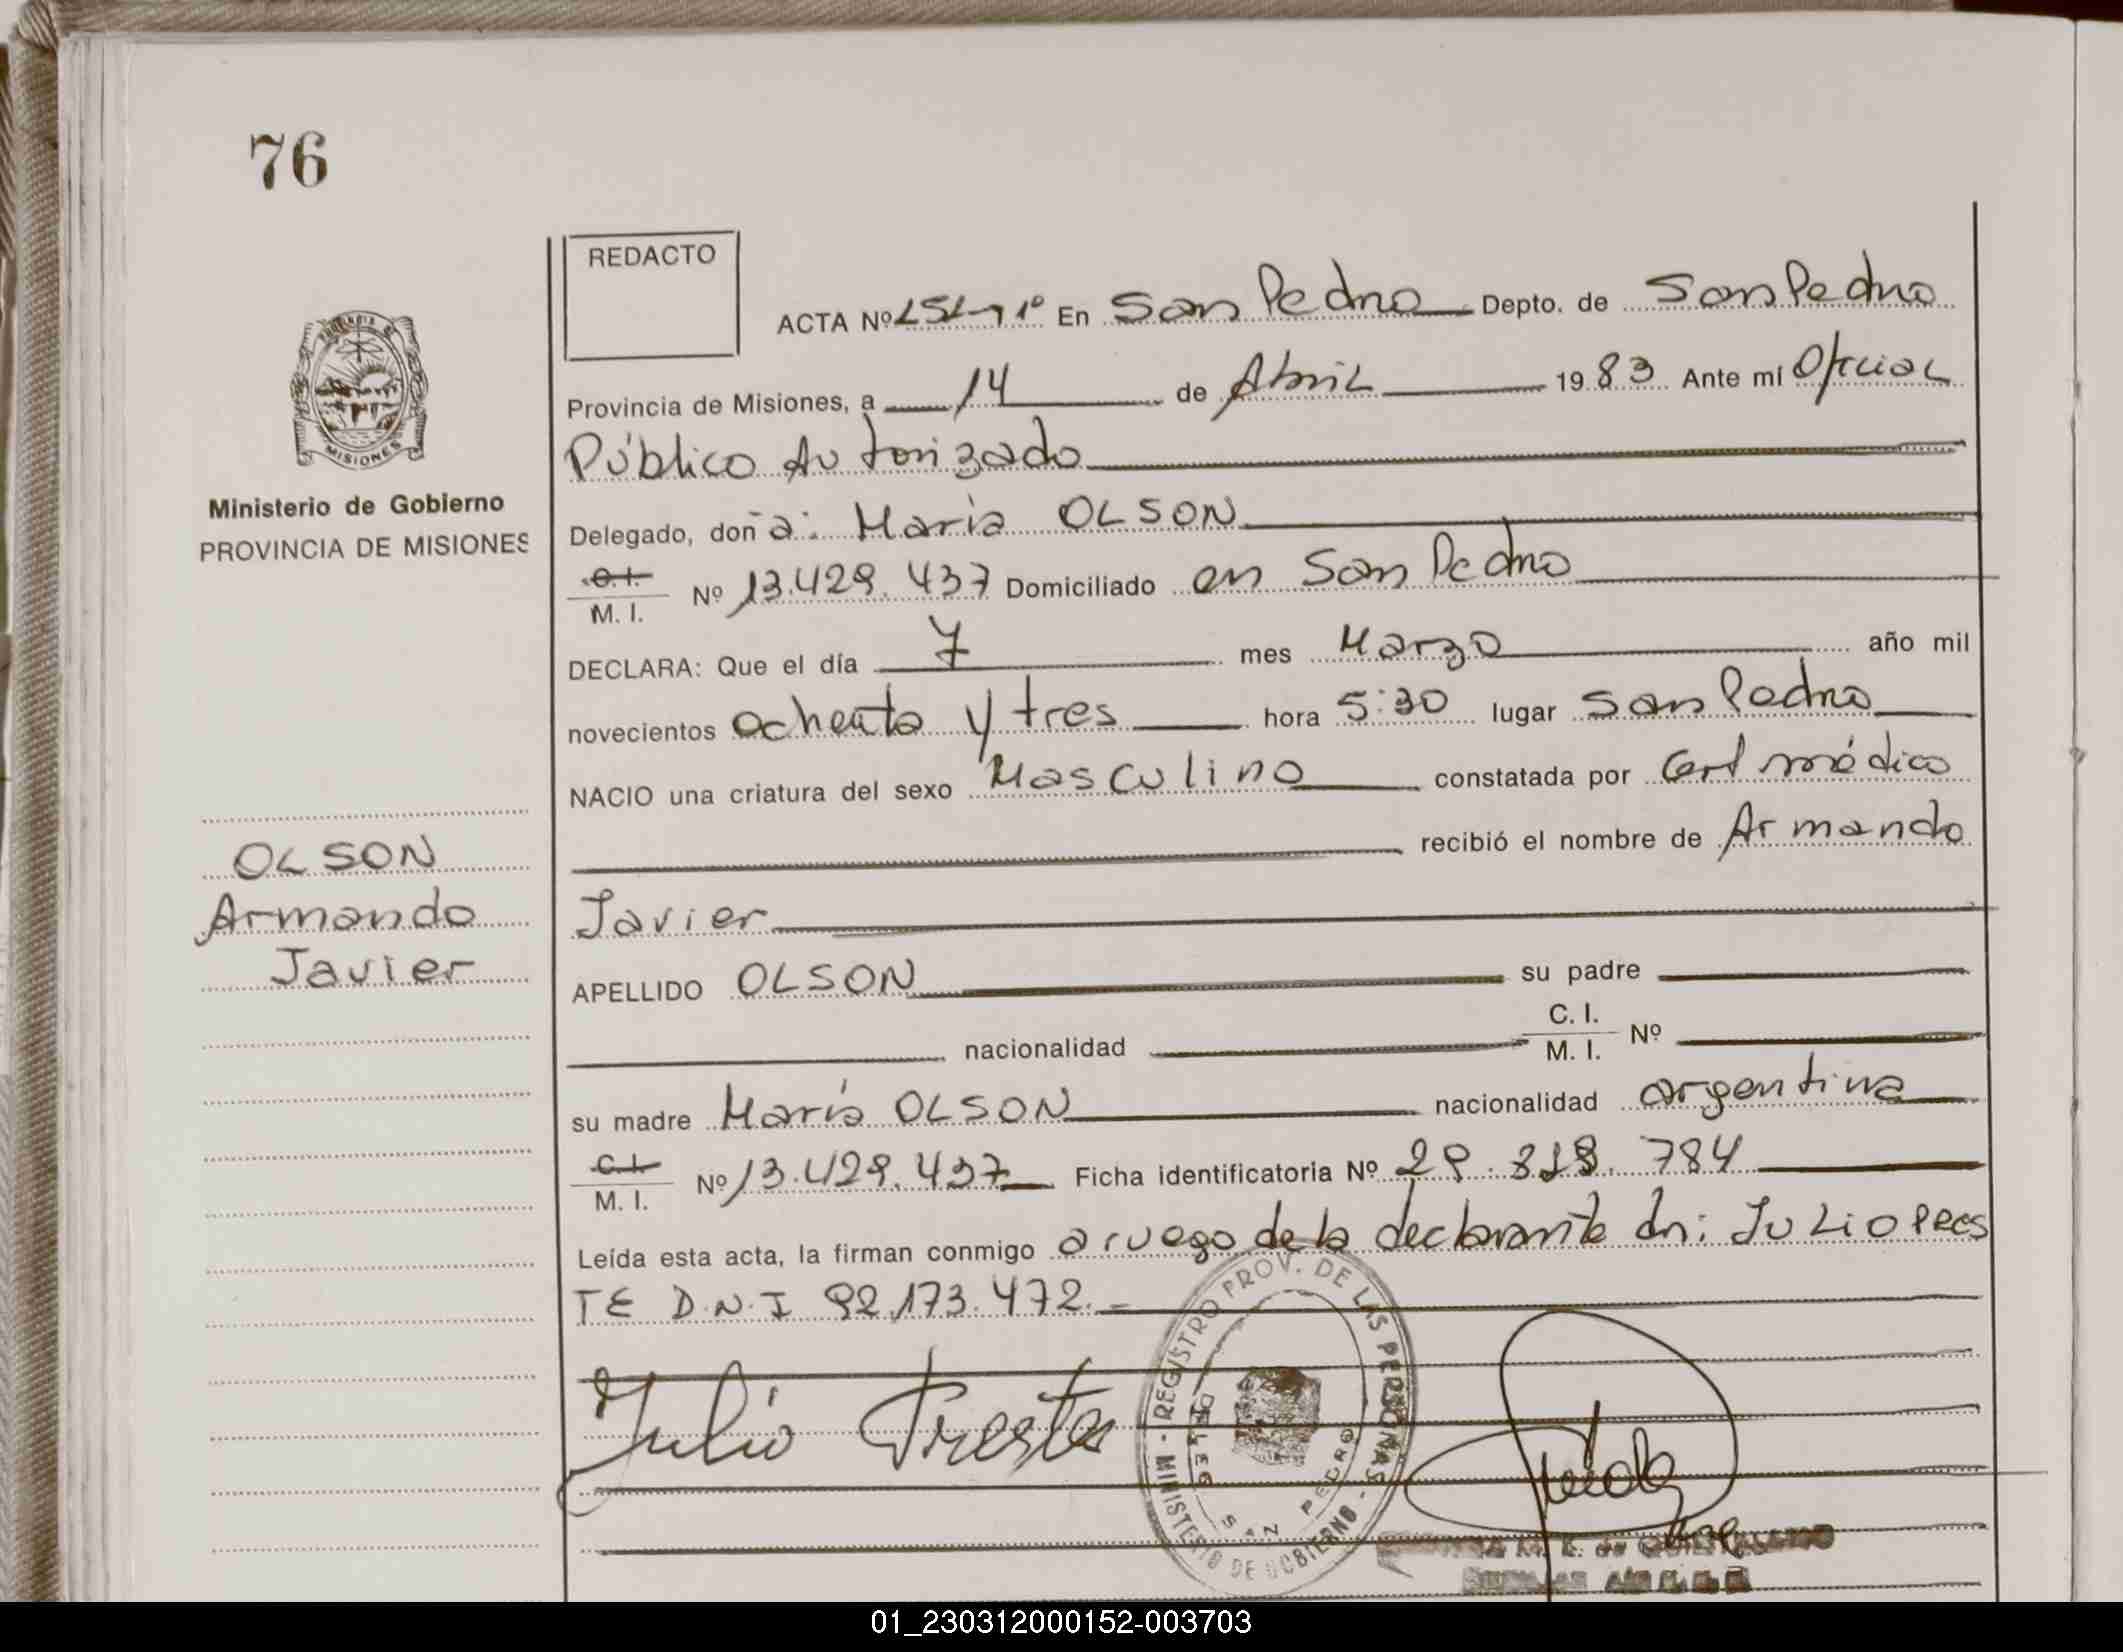 76
REDACTO
ACTA Nº 151-T1º En San Pedro Depto. de San Pedro
Provincia de Misiones, a 14 de Abril 1983 Ante mí Oficial
Público Autorizado
Ministerio de Gobierno
PROVINCIA DE MISIONES
Delegado, doña: María OLSON
C.I.
M. I. Nº 13.429.437 Domiciliado en San Pedro
DECLARA: Que el día 7 mes Marzo año mil
novecientos ochenta y tres hora 5:30 lugar San Pedro
NACIO una criatura del sexo Masculino constatada por Cert médico
recibió el nombre de Armando
Javier
OLSON
Armando
Javier
APELLIDO OLSON su padre
nacionalidad C. I.
M. I. Nº
su madre María OLSON nacionalidad argentina
C.I.
M. I. Nº 13.429.437 Ficha identificatoria Nº 29.818.784
Leída esta acta, la firman conmigo a ruego de la declarante dn: JULIO PRES
TE D.N.I 92.173.472.-
Julio Preste
MINISTERIO DE GOBIERNO - REGISTRO PROV. DE LAS PERSONAS
SAN PEDRO
01_230312000152-003703